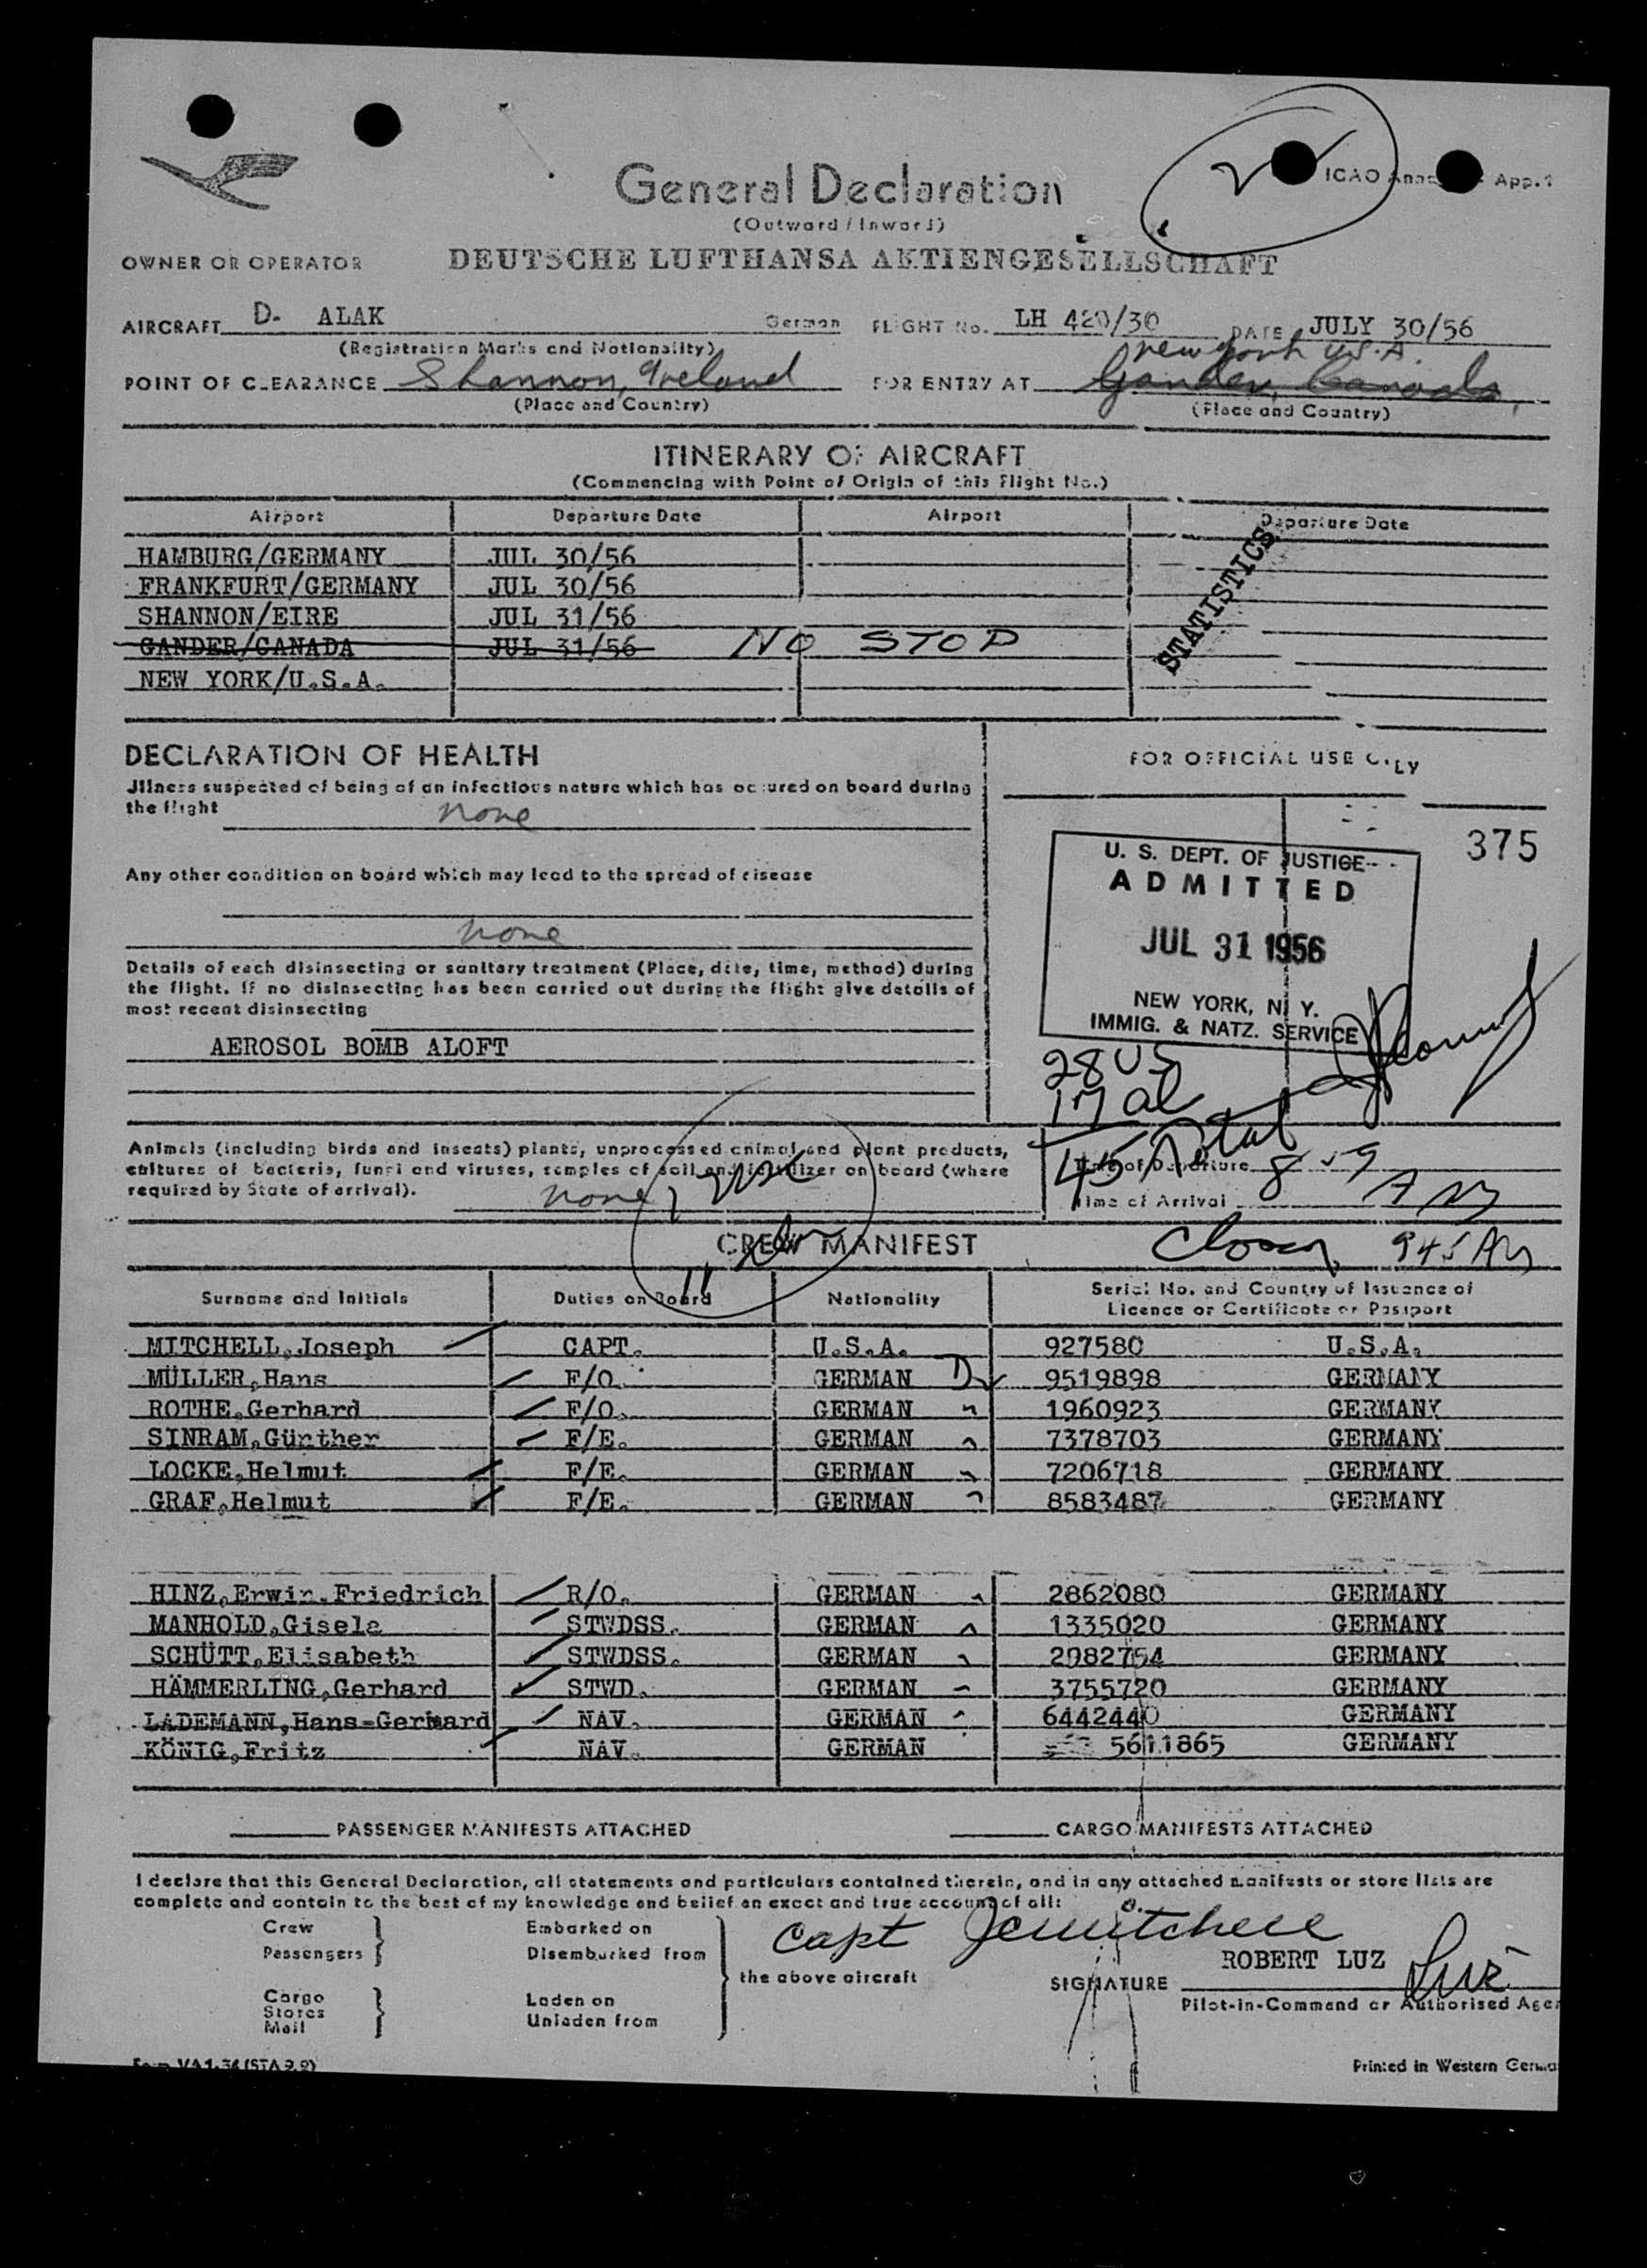 ICAO App. 1
General Declaration
(Outward / Inward)
OWNER OR OPERATOR DEUTSCHE LUFTHANSA AKTIENGESELLSCHAFT
AIRCRAFT D- ALAK German FLIGHT No. LH 420/30 DATE JULY 30/56
(Registration Marks and Nationality)
New York U.S.A.
POINT OF CLEARANCE Shannon, Ireland FOR ENTRY AT Gander, Canada,
(Place and Country) (Place and Country)
ITINERARY OF AIRCRAFT
(Commencing with Point of Origin of this Flight No.)
Airport Departure Date Airport Departure Date
HAMBURG/GERMANY JUL 30/56
FRANKFURT/GERMANY JUL 30/56
SHANNON/EIRE JUL 31/56
GANDER/CANADA JUL 31/56 NO STOP
NEW YORK/U.S.A.
STATISTICS
DECLARATION OF HEALTH
Illness suspected of being of an infectious nature which has occured on board during
the flight none
Any other condition on board which may lead to the spread of disease
none
Details of each disinsecting or sanitary treatment (Place, date, time, method) during
the flight. If no disinsecting has been carried out during the flight give details of
most recent disinsecting
AEROSOL BOMB ALOFT
FOR OFFICIAL USE ONLY
375
U. S. DEPT. OF JUSTICE
ADMITTED
JUL 31 1956
NEW YORK, N. Y.
IMMIG. & NATZ. SERVICE
28 US
17 al
45 Total
Animals (including birds and insects) plants, unprocessed animal and plant products,
cultures of bacteria, fungi and viruses, samples of soil and fertilizer on board (where
required by State of arrival). none
Time of Departure
Time of Arrival AM
945 AM
CREW MANIFEST
11
Surname and Initials Duties on Board Nationality Serial No. and Country of Issuance of
Licence or Certificate or Passport
MITCHELL,Joseph CAPT. U.S.A. 927580 U.S.A.
MÜLLER,Hans F/O. GERMAN D 9519898 GERMANY
ROTHE,Gerhard F/O. GERMAN 1960923 GERMANY
SINRAM,Günther F/E. GERMAN 7378703 GERMANY
LOCKE,Helmut F/E. GERMAN 7206718 GERMANY
GRAF,Helmut F/E. GERMAN 8583487 GERMANY
HINZ,Erwin.Friedrich R/O. GERMAN 2862080 GERMANY
MANHOLD,Gisela STWDSS. GERMAN 1335020 GERMANY
SCHÜTT,Elisabeth STWDSS. GERMAN 2982754 GERMANY
HÄMMERLING,Gerhard STWD. GERMAN 3755720 GERMANY
LADEMANN,Hans-Gerhard NAV. GERMAN 6442440 GERMANY
KÖNIG,Fritz NAV. GERMAN 5611865 GERMANY
PASSENGER MANIFESTS ATTACHED CARGO MANIFESTS ATTACHED
I declare that this General Declaration, all statements and particulars contained therein, and in any attached manifests or store lists are
complete and contain to the best of my knowledge and belief an exact and true account of all:
Crew Embarked on
Passengers Disembarked from
Capt Mitchell
the above aircraft
Cargo
Stores
Mail
Laden on
Unladen from
ROBERT LUZ Luz
SIGNATURE
Pilot-in-Command or Authorised
Form VA1-34 (STA 9.9)
Printed in Western